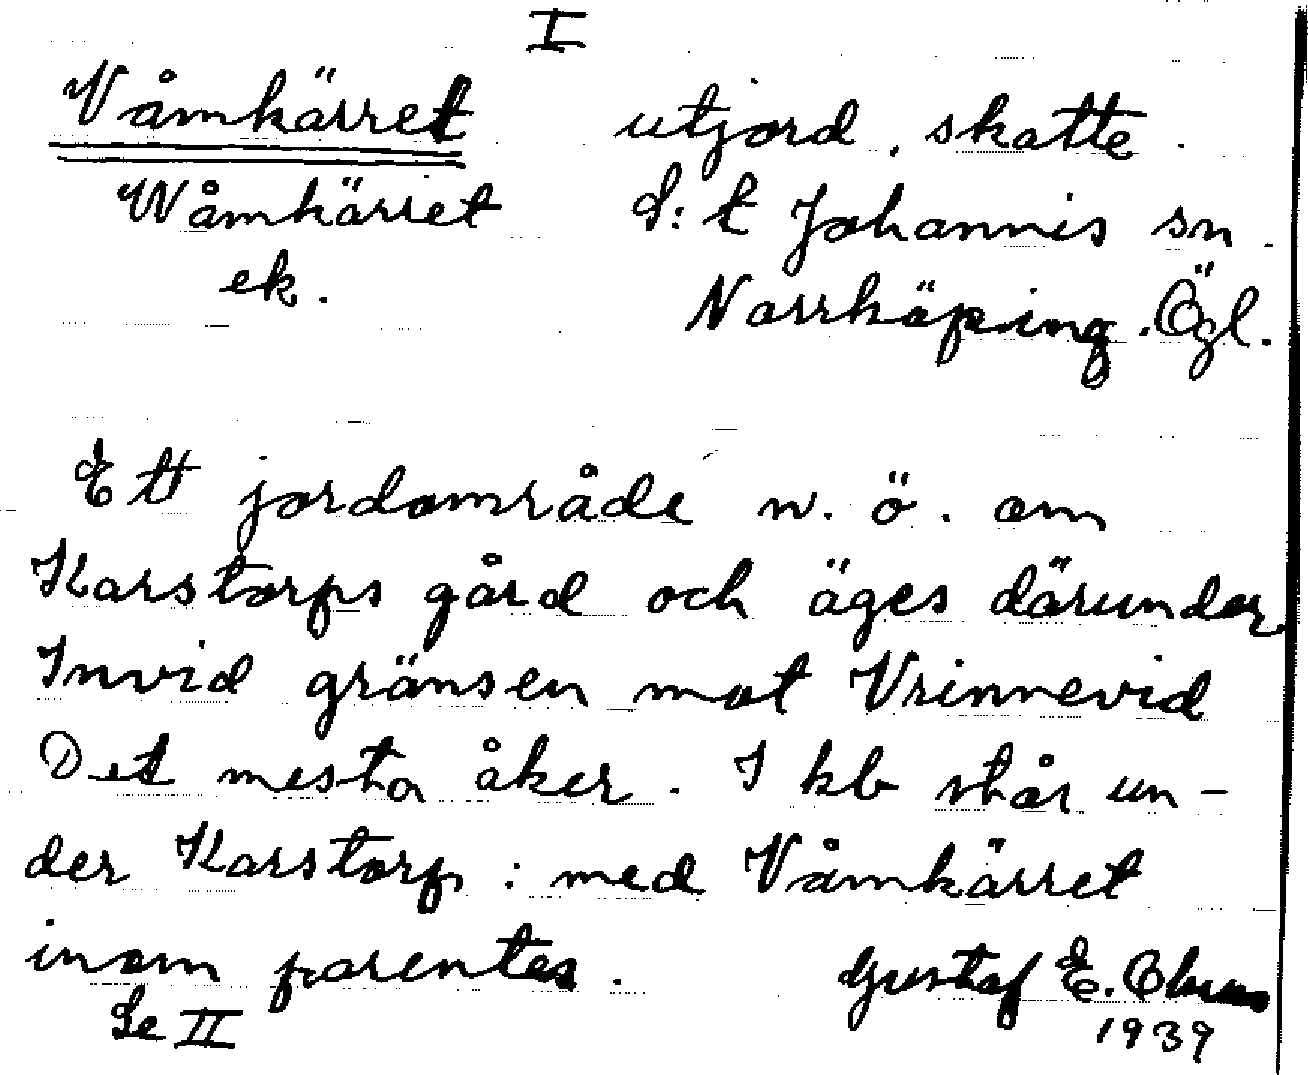 I
Våmkärret utjord, skatte.
Wåmkärret S:t Johannis sn.
ek. Norrköping. Ögl.
Ett jordområde n. ö. om
Karstorps gård och äges därunder
Invid gränsen mot Vrinnevid
Det mesta åker. I kb står un-
der Karstorp: med Våmkärret
inom parentes. Gustaf E.
Se II 1939